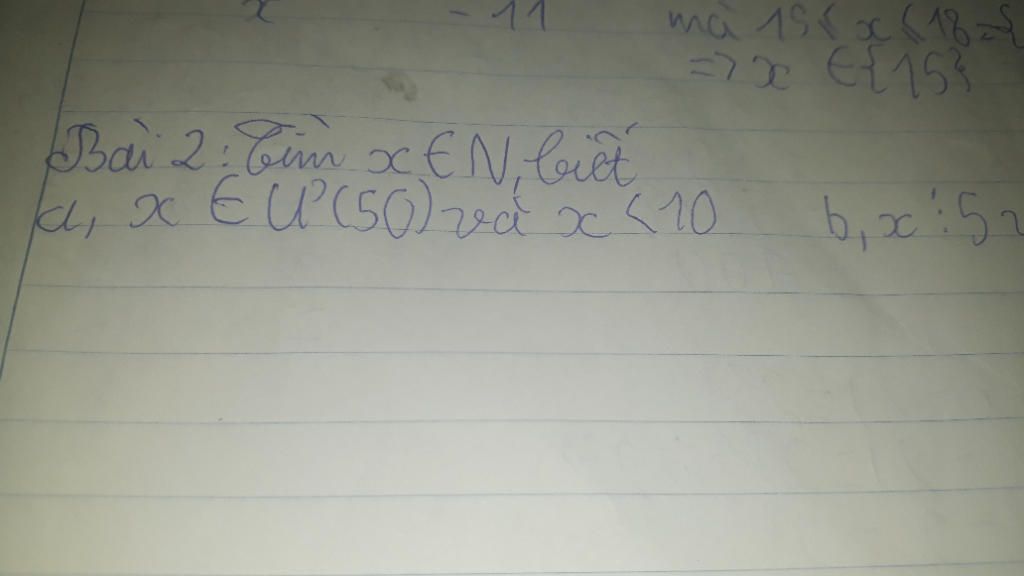 x - 11 mà 15 ≤ x ≤ 18 =>
=> x ∈ {15}
Bài 2: Tìm x ∈ N, biết
a, x ∈ Ư(50) và x < 10 b, x ⋮ 5